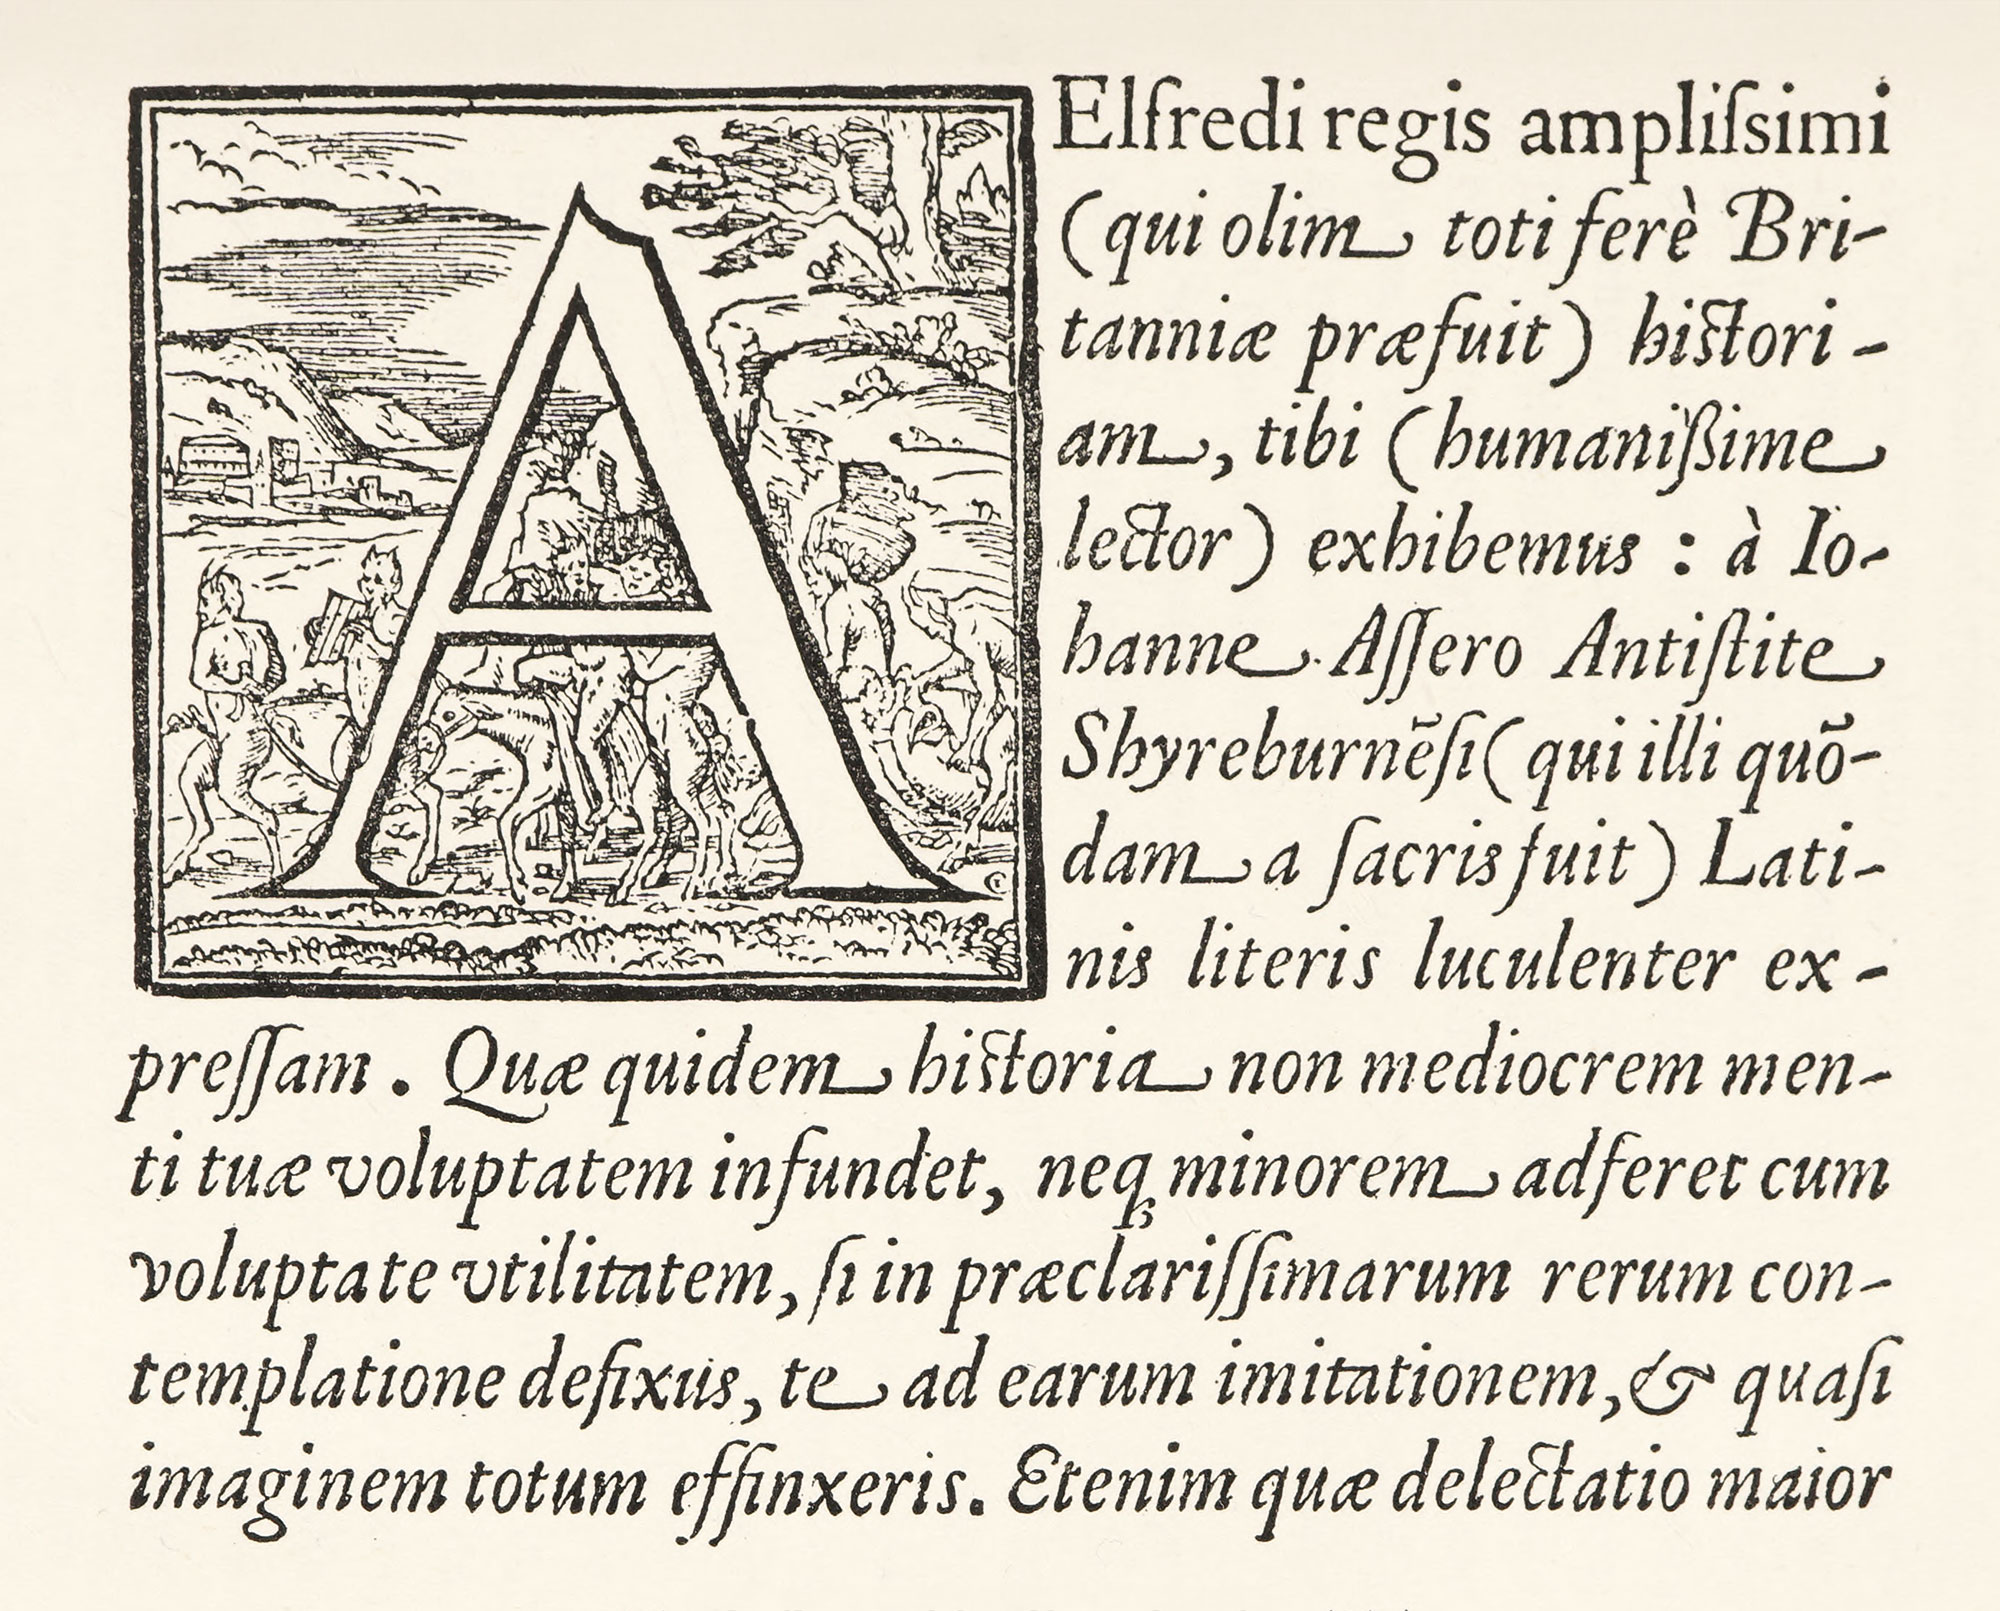 AElfredi regis ampliſsimi
(qui olim toti ferè Bri-
tanniæ præfuit) histori-
am, tibi (humanißime
lector) exhibemus : à Io-
hanne Aſſero Antiſtite
Shyreburnẽſi (qui illi quõ-
dam a ſacris fuit) Lati-
nis literis luculenter ex-
preſſam. Quæ quidem historia non mediocrem men-
ti tuæ voluptatem infundet, neqꝫ minorem adferet cum
voluptate vtilitatem, ſi in præclariſſimarum rerum con-
templatione defixus, te ad earum imitationem, & quaſi
imaginem totum effinxeris. Etenim quæ delectatio maior